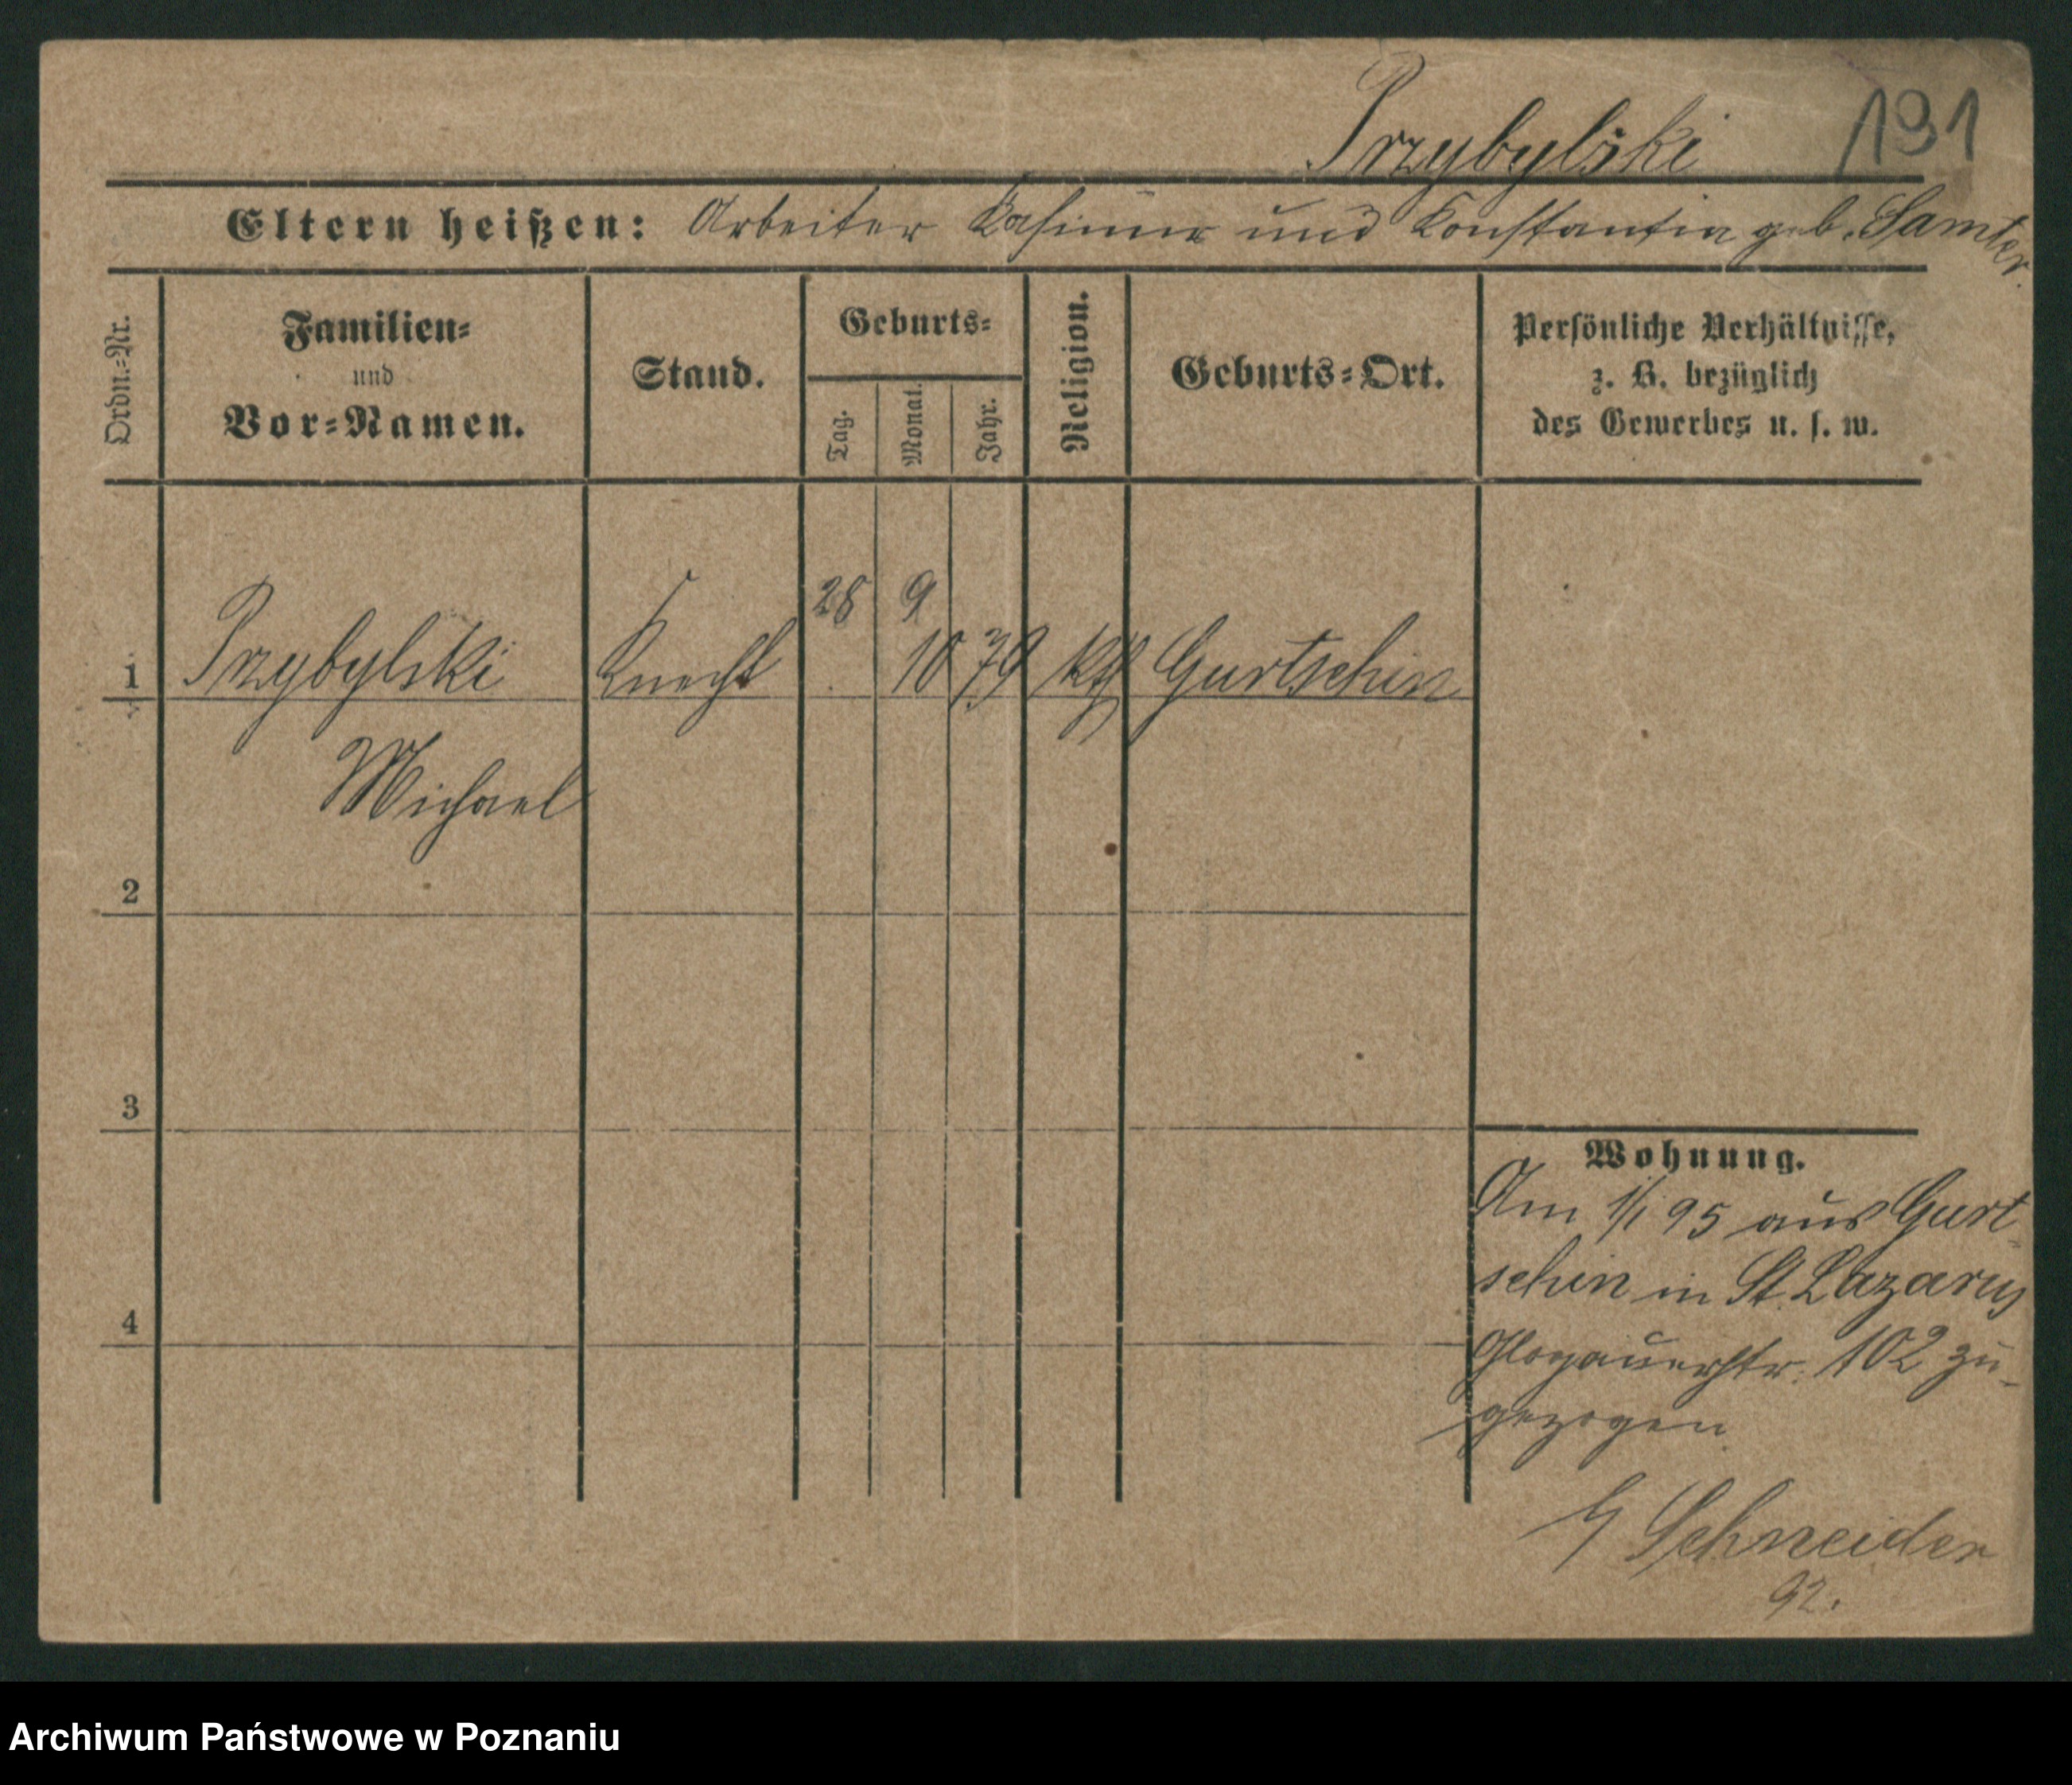 Przybylski 191
Eltern heißen: Arbeiter Kasimir und Konstantia geb. Samter.
Ordn.-Nr.
Familien-
und
Vor-Namen.
Stand.
Geburts-
Tag.
Monat.
Jahr.
Religion.
Geburts-Ort.
Persönliche Verhältnisse,
z. B. bezüglich
des Gewerbes u. s. w.
28 9
1 Przybylski Knecht 10 79 kth Gurtschin
Michael
2
3
4
Wohnung.
Am 1/1 95 aus Gurt-
schin in St. Lazarus
Glogauerstr. 102 zu-
gezogen
Schneider
92.
Archiwum Państwowe w Poznaniu